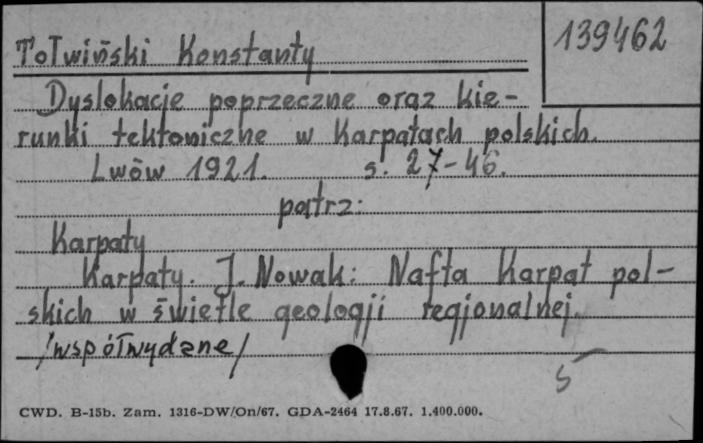 139462
Tołwiński Konstanty
Dyslokacje poprzeczne oraz kie-
runki tektoniczne w Karpatach polskich.
Lwów 1921. s. 27-46.
patrz:
Karpaty
Karpaty. J. Nowak: Nafta Karpat pol-
skich w świetle geologji regjonalnej.
/współwydane/
5
CWD. B-15b. Zam. 1316-DW/On/67. GDA-2464 17.8.67. 1.400.000.